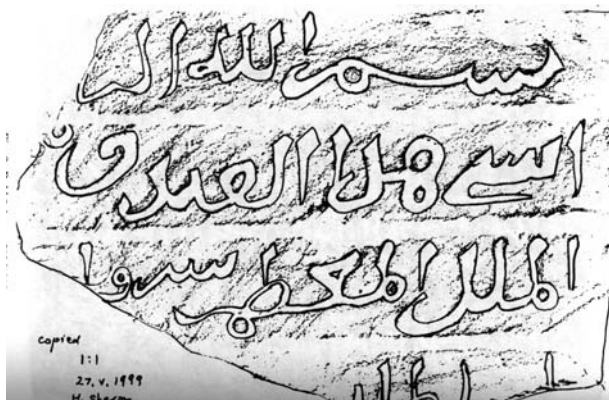 بسم الله الر
انشئ هذا الفندق
الملك المعظم شرف ا
copied
1:1
27. V. 1999
M. Sharon